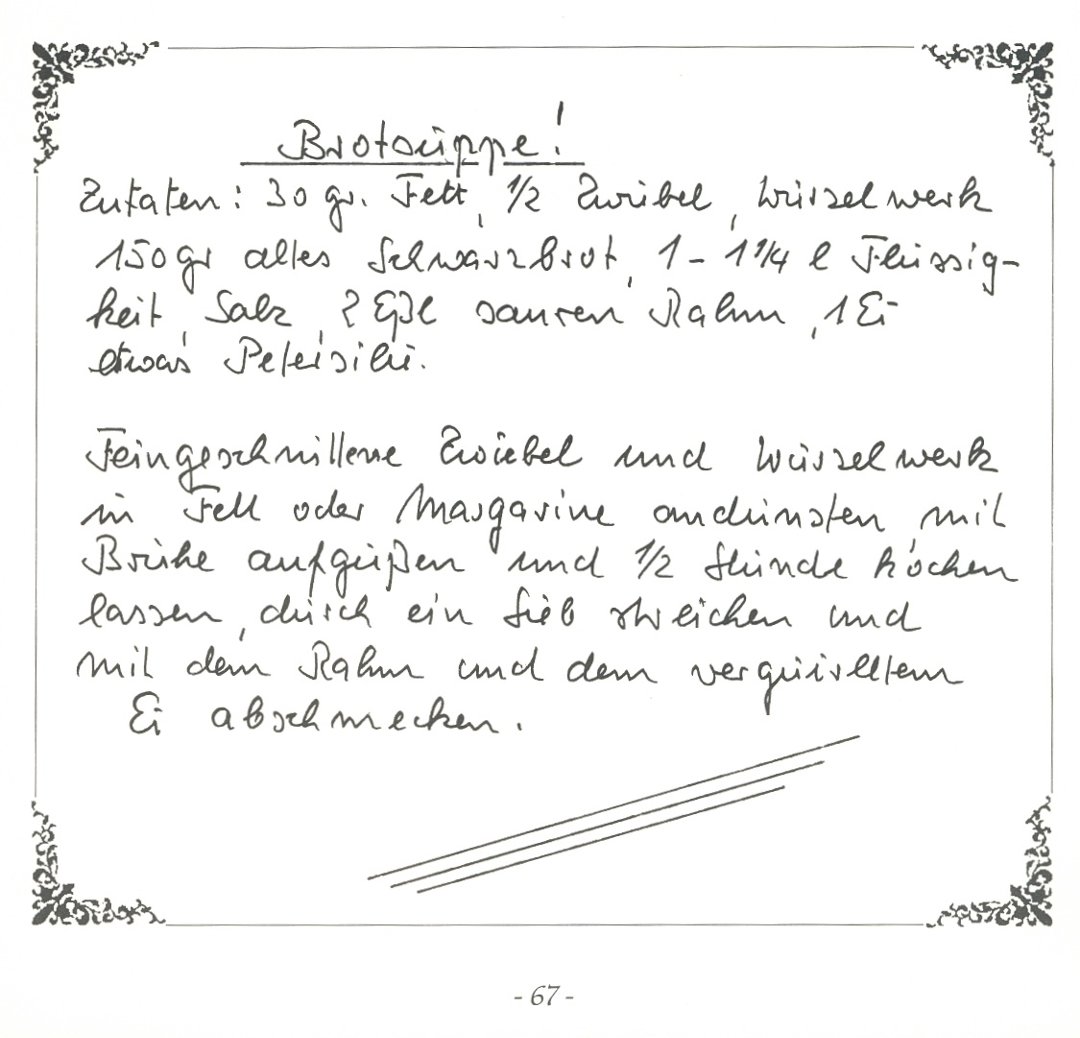 Brotsuppe!
Zutaten: 30 gr. Fett, 1/2 Zwiebel, Wurzelwerk
150 gr altes Schwarzbrot, 1 - 1 1/4 l Flüssig-
keit, Salz, 2 Eßl sauren Rahm, 1 Ei
etwas Petersilie.
Feingeschnittene Zwiebel und Wurzelwerk
in Fett oder Margarine andünsten, mit
Brühe aufgießen und 1/2 Stunde kochen
lassen, durch ein Sieb streichen und
mit dem Rahm und dem verquirltem
Ei abschmecken.
- 67 -